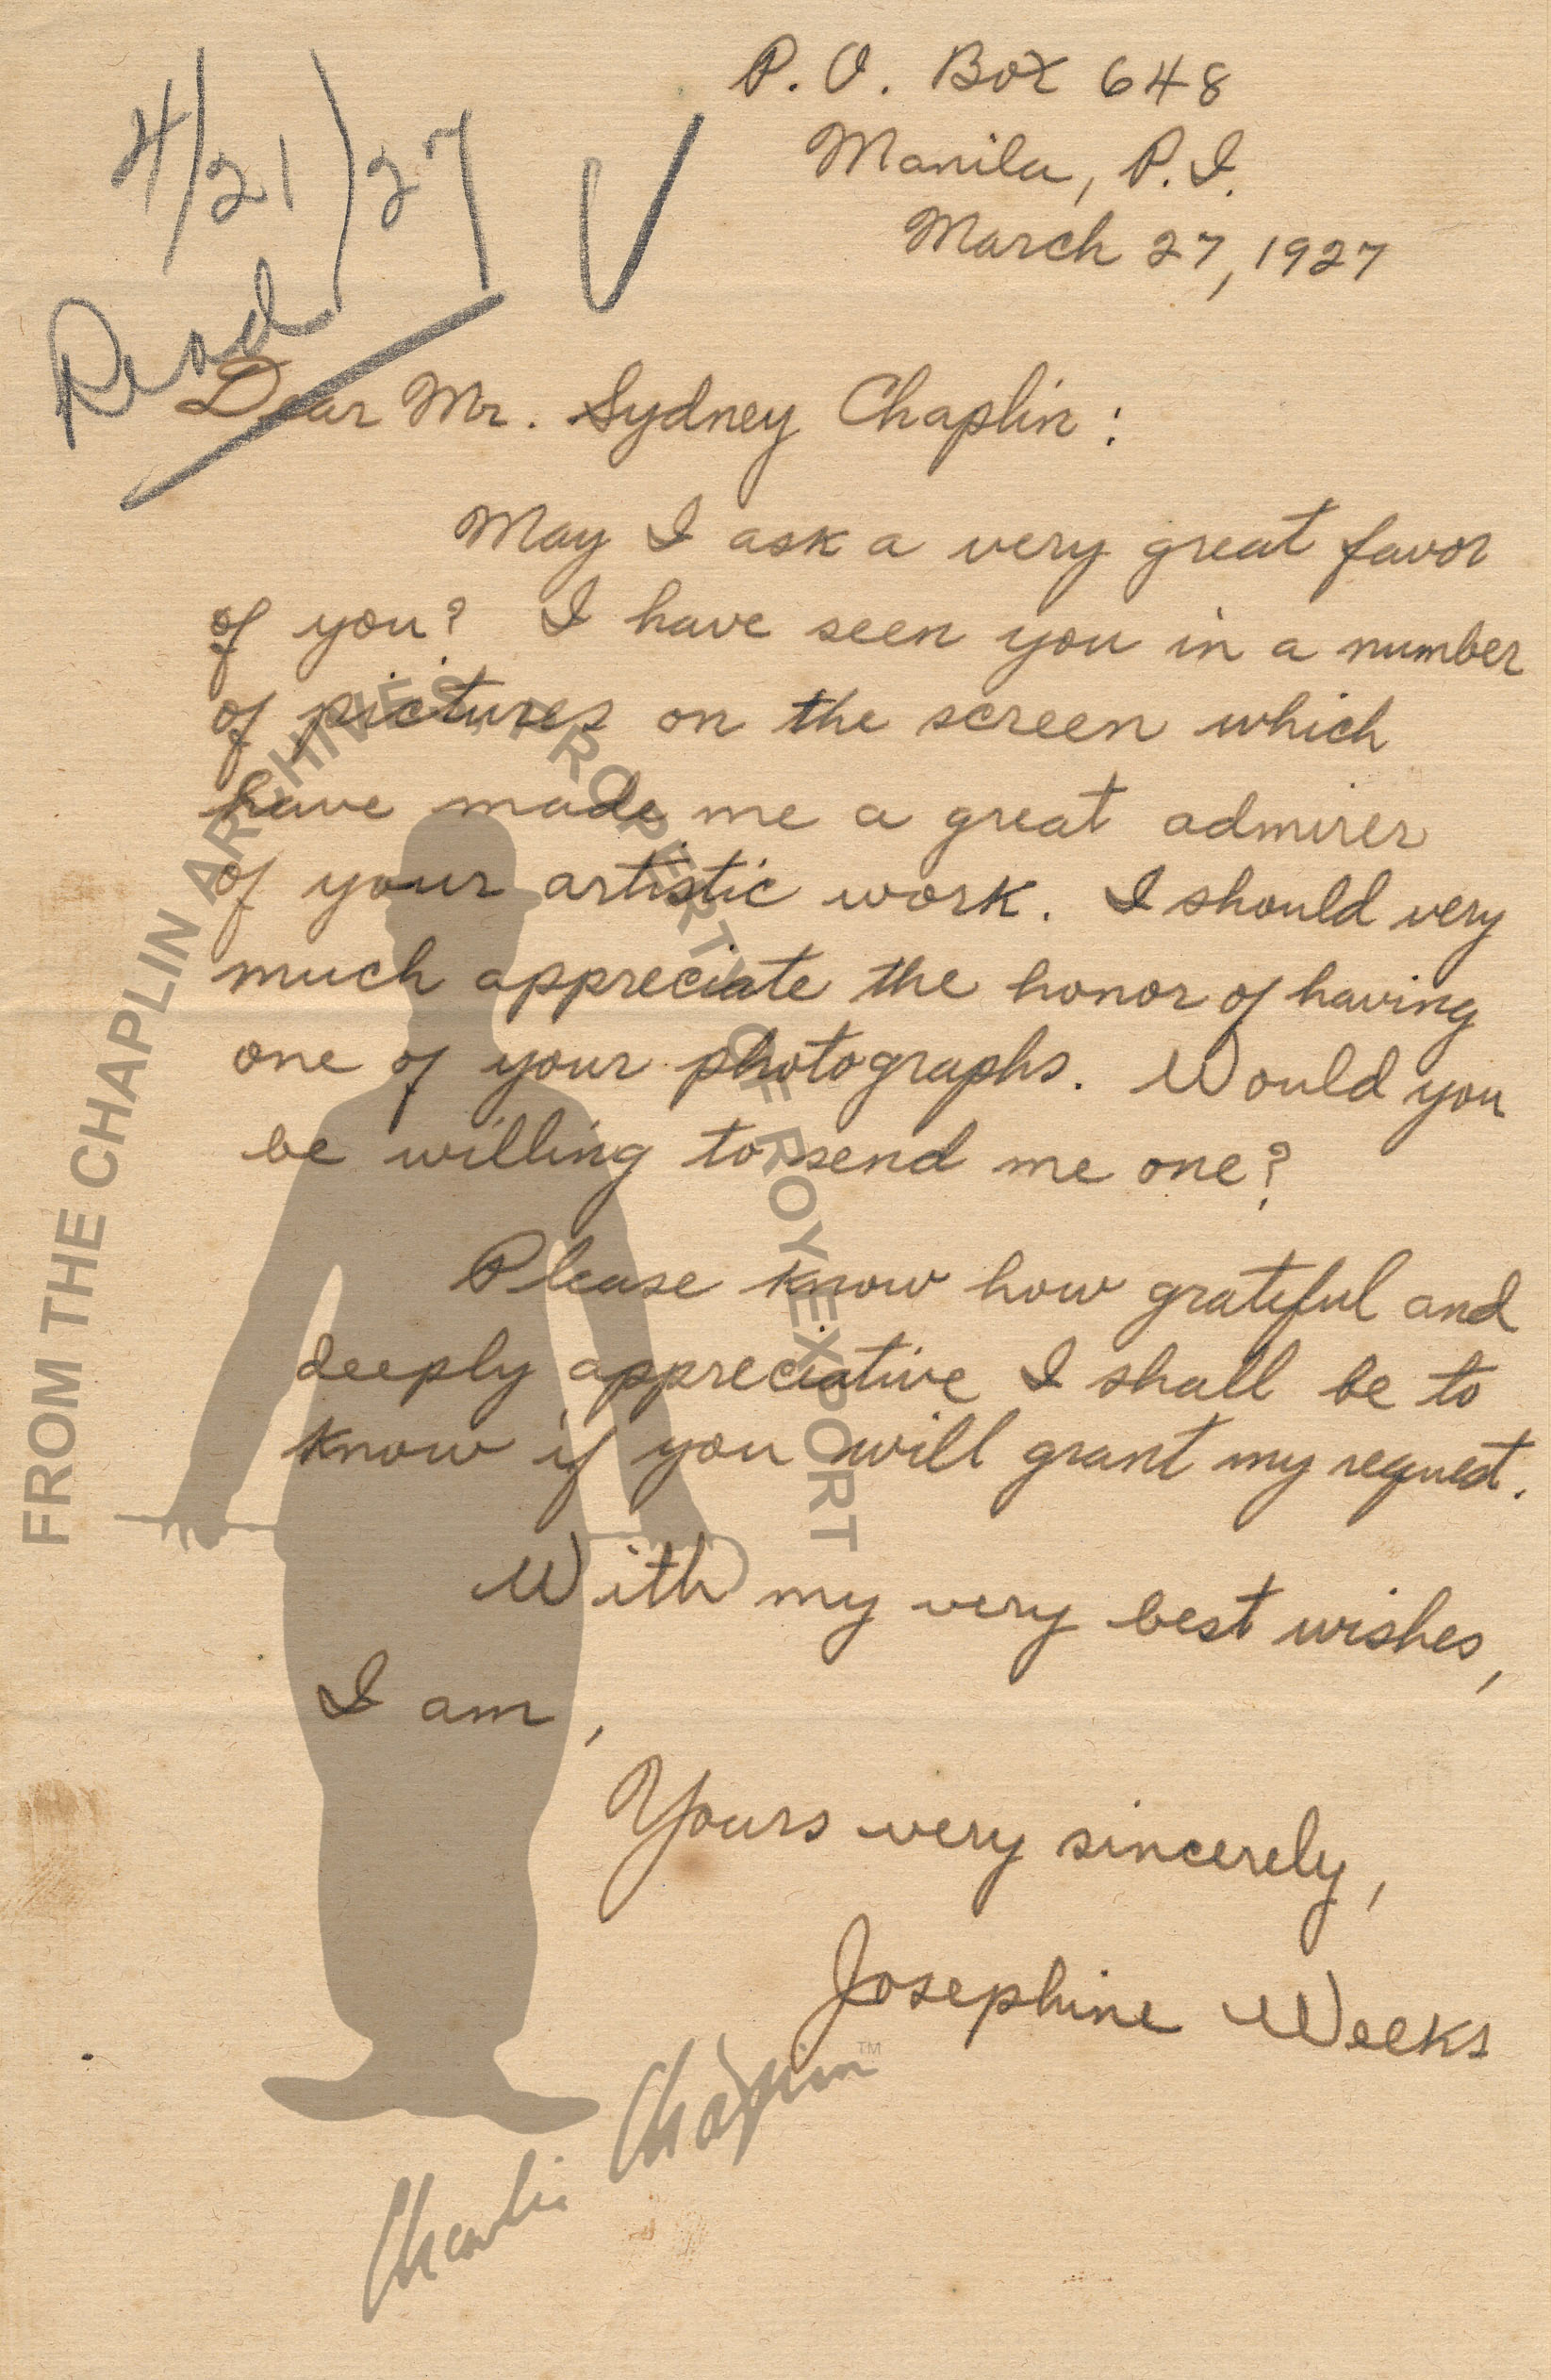 P. O. Box 648
Manila, P.I.
March 27, 1927
4/21/27
Read
Dear Mr. Sydney Chaplin:
May I ask a very great favor
of you? I have seen you in a number
of pictures on the screen which
have made me a great admirer
of your artistic work. I should very
much appreciate the honor of having
one of your photographs. Would you
be willing to send me one?
Please know how grateful and
deeply appreciative I shall be to
know if you will grant my request.
With my very best wishes,
I am,
Yours very sincerely,
Josephine Weeks
FROM THE CHAPLIN ARCHIVES, PROPERTY OF ROY EXPORT
Charlie Chaplin™